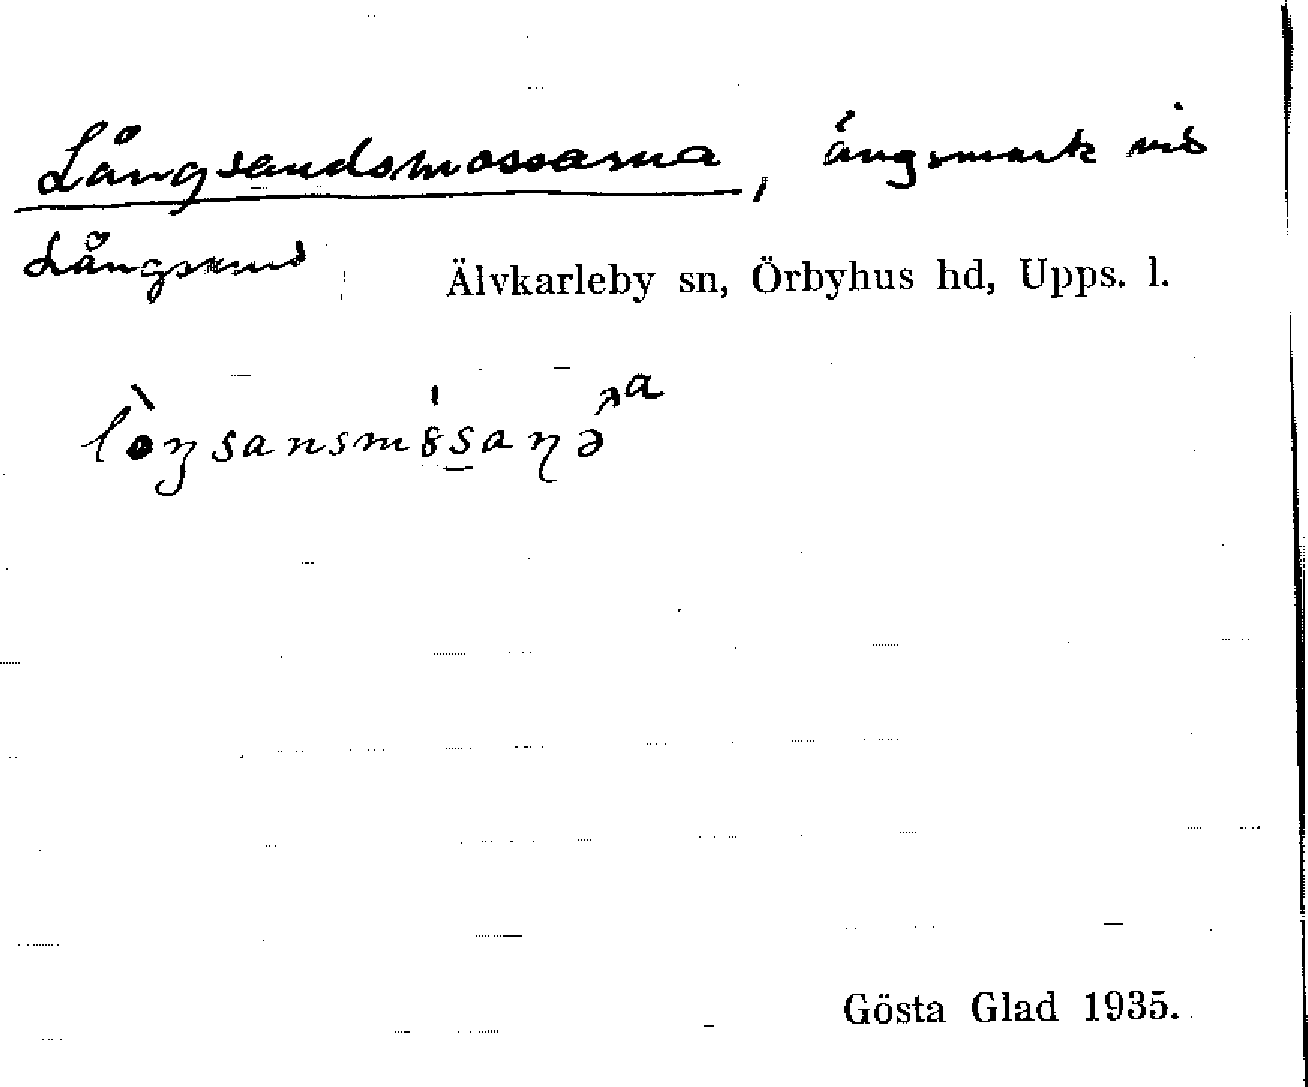 Långsandsmossarna, ängsmark vid
Långsand Älvkarleby sn, Örbyhus hd, Upps. l.
Gösta Glad 1935.